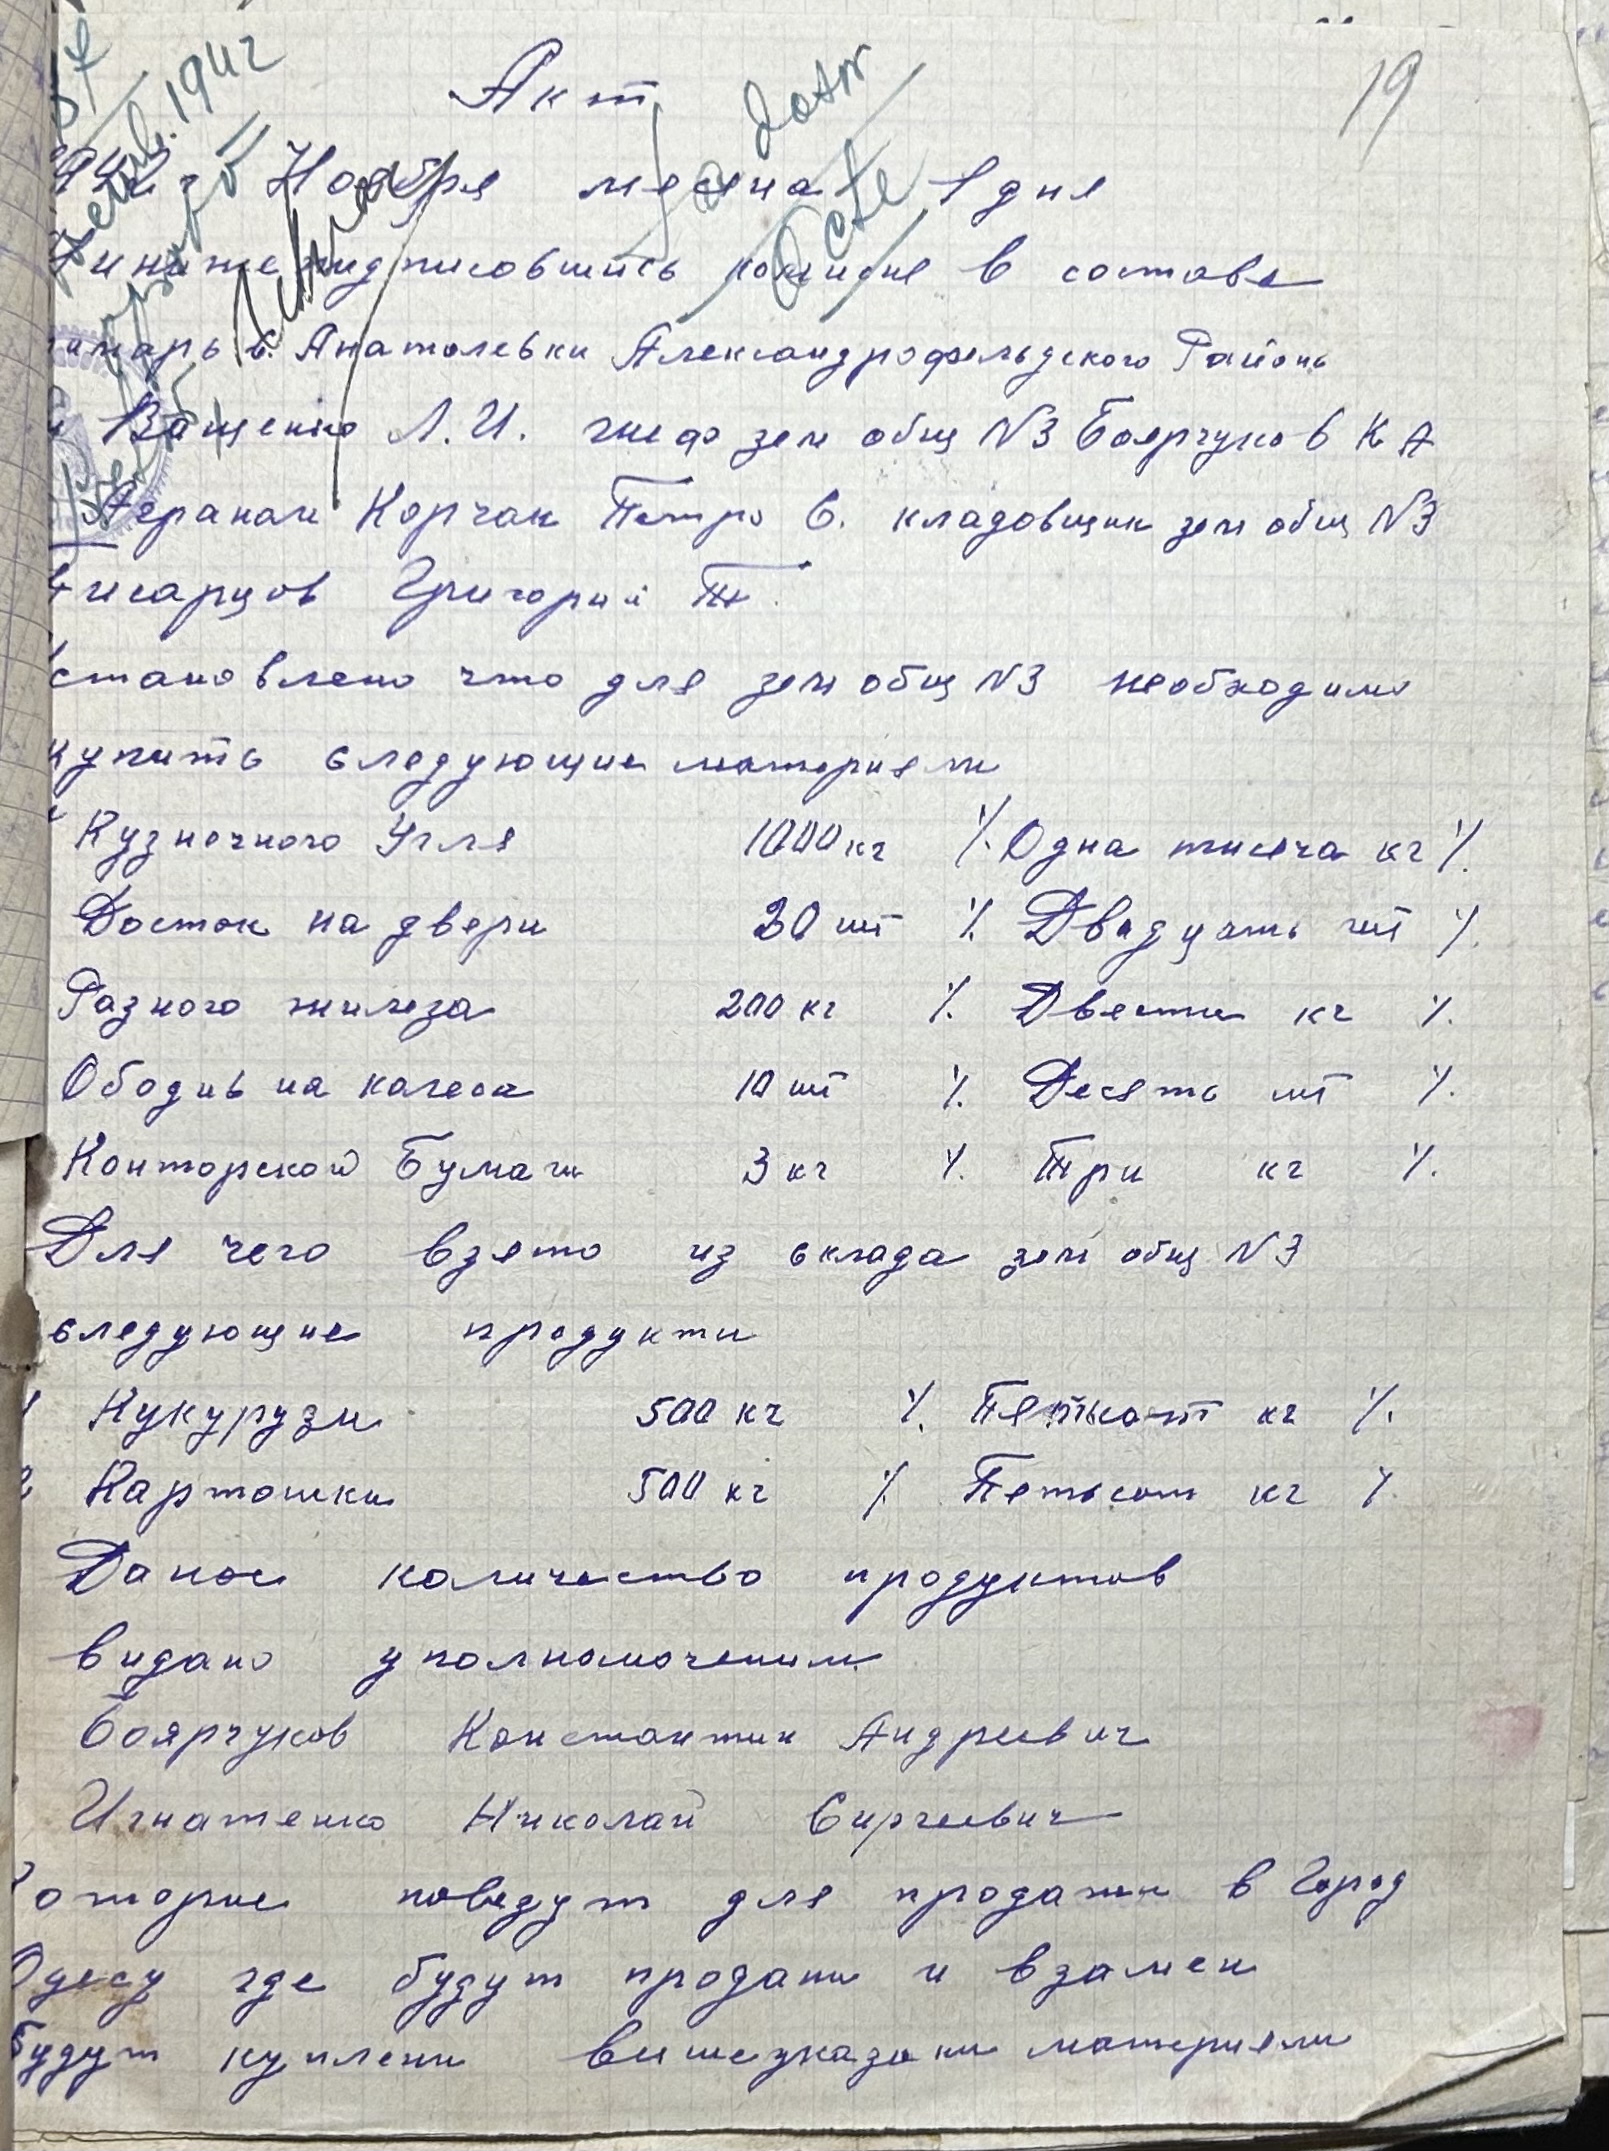 19
Акт
1942 г Ноября месяца 1 дня
нижеподписовшись комисия в составе
с. Анатолевки Александрофельдского Района
Ващенко Л.И. шеф зем общ N3 Боярчуков К А
Аграном Корчак Петро С. кладовщик зем общ N3
Григорий Т.
становлено что для зем общ N3 необходимо
купить следующие материяли
Кузночного Угля 1000 кг % Одна тисяча кг %
Досток на двери 20 шт % Двадцать шт %
Разного железа 200 кг % Двести кг %
Ободив на колеса 10 шт % Десять шт %
Конторской Бумаги 3 кг % Три кг %
Для чего взято из склада зем общ N3
следующие продукти
1 Кукурузи 500 кг % Пятьсот кг %
2 Картошки 500 кг % Петьсот кг %
Даное количество продуктов
видано уполномоченим
Боярчуков Константин Андреевич
Игнатенко Николай Сиргеевич
Которие повезут для продажи в Город
Одесу где будут продани и взамен
Будут куплени вишеуказани материяли